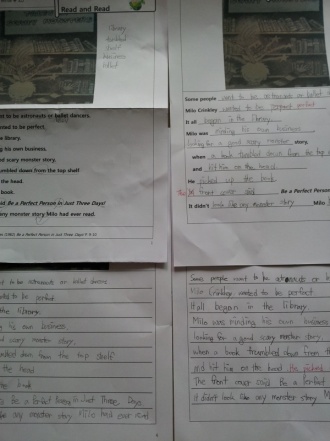 Read and Read
library
tumbled
shelf
business
t to be astronauts or ballet dancers.
nted to be perfect.
e library.
g his own business,
nd scary monster story,
umbled down from the top shelf
the head.
book.
id Be a Perfect Person in Just Three Days!
ary monster story Milo had ever read.
Be a Perfect Person in Just Three Days!
t to be astronauts or ballet dancers
nted to be perfect
the library.
g his own business.
d scary monster story.
down from the top shelf
the head
book
Be a Perfect Person in Just Three Days.
any monster story Milo had ever read
Some people want to be astronauts or ballet
Milo Crinkley wanted to be perfect
It all began in the library
Milo was minding his own business
looking for a good scary monster story,
when a book tumbled down from the top
and hit him on the head.
He picked up the book.
The front cover said Be a Perfect Person
It didn't look like any monster story Milo
Some people want to be astronauts or b
Milo Crinkley wanted to be perfect.
It all began in the library.
Milo was minding his own business
looking for a good scary monster story.
when a book tumbled down from th
and hit him on the head He picked
The front cover said Be a Perfect
It didn't look like any monster story M